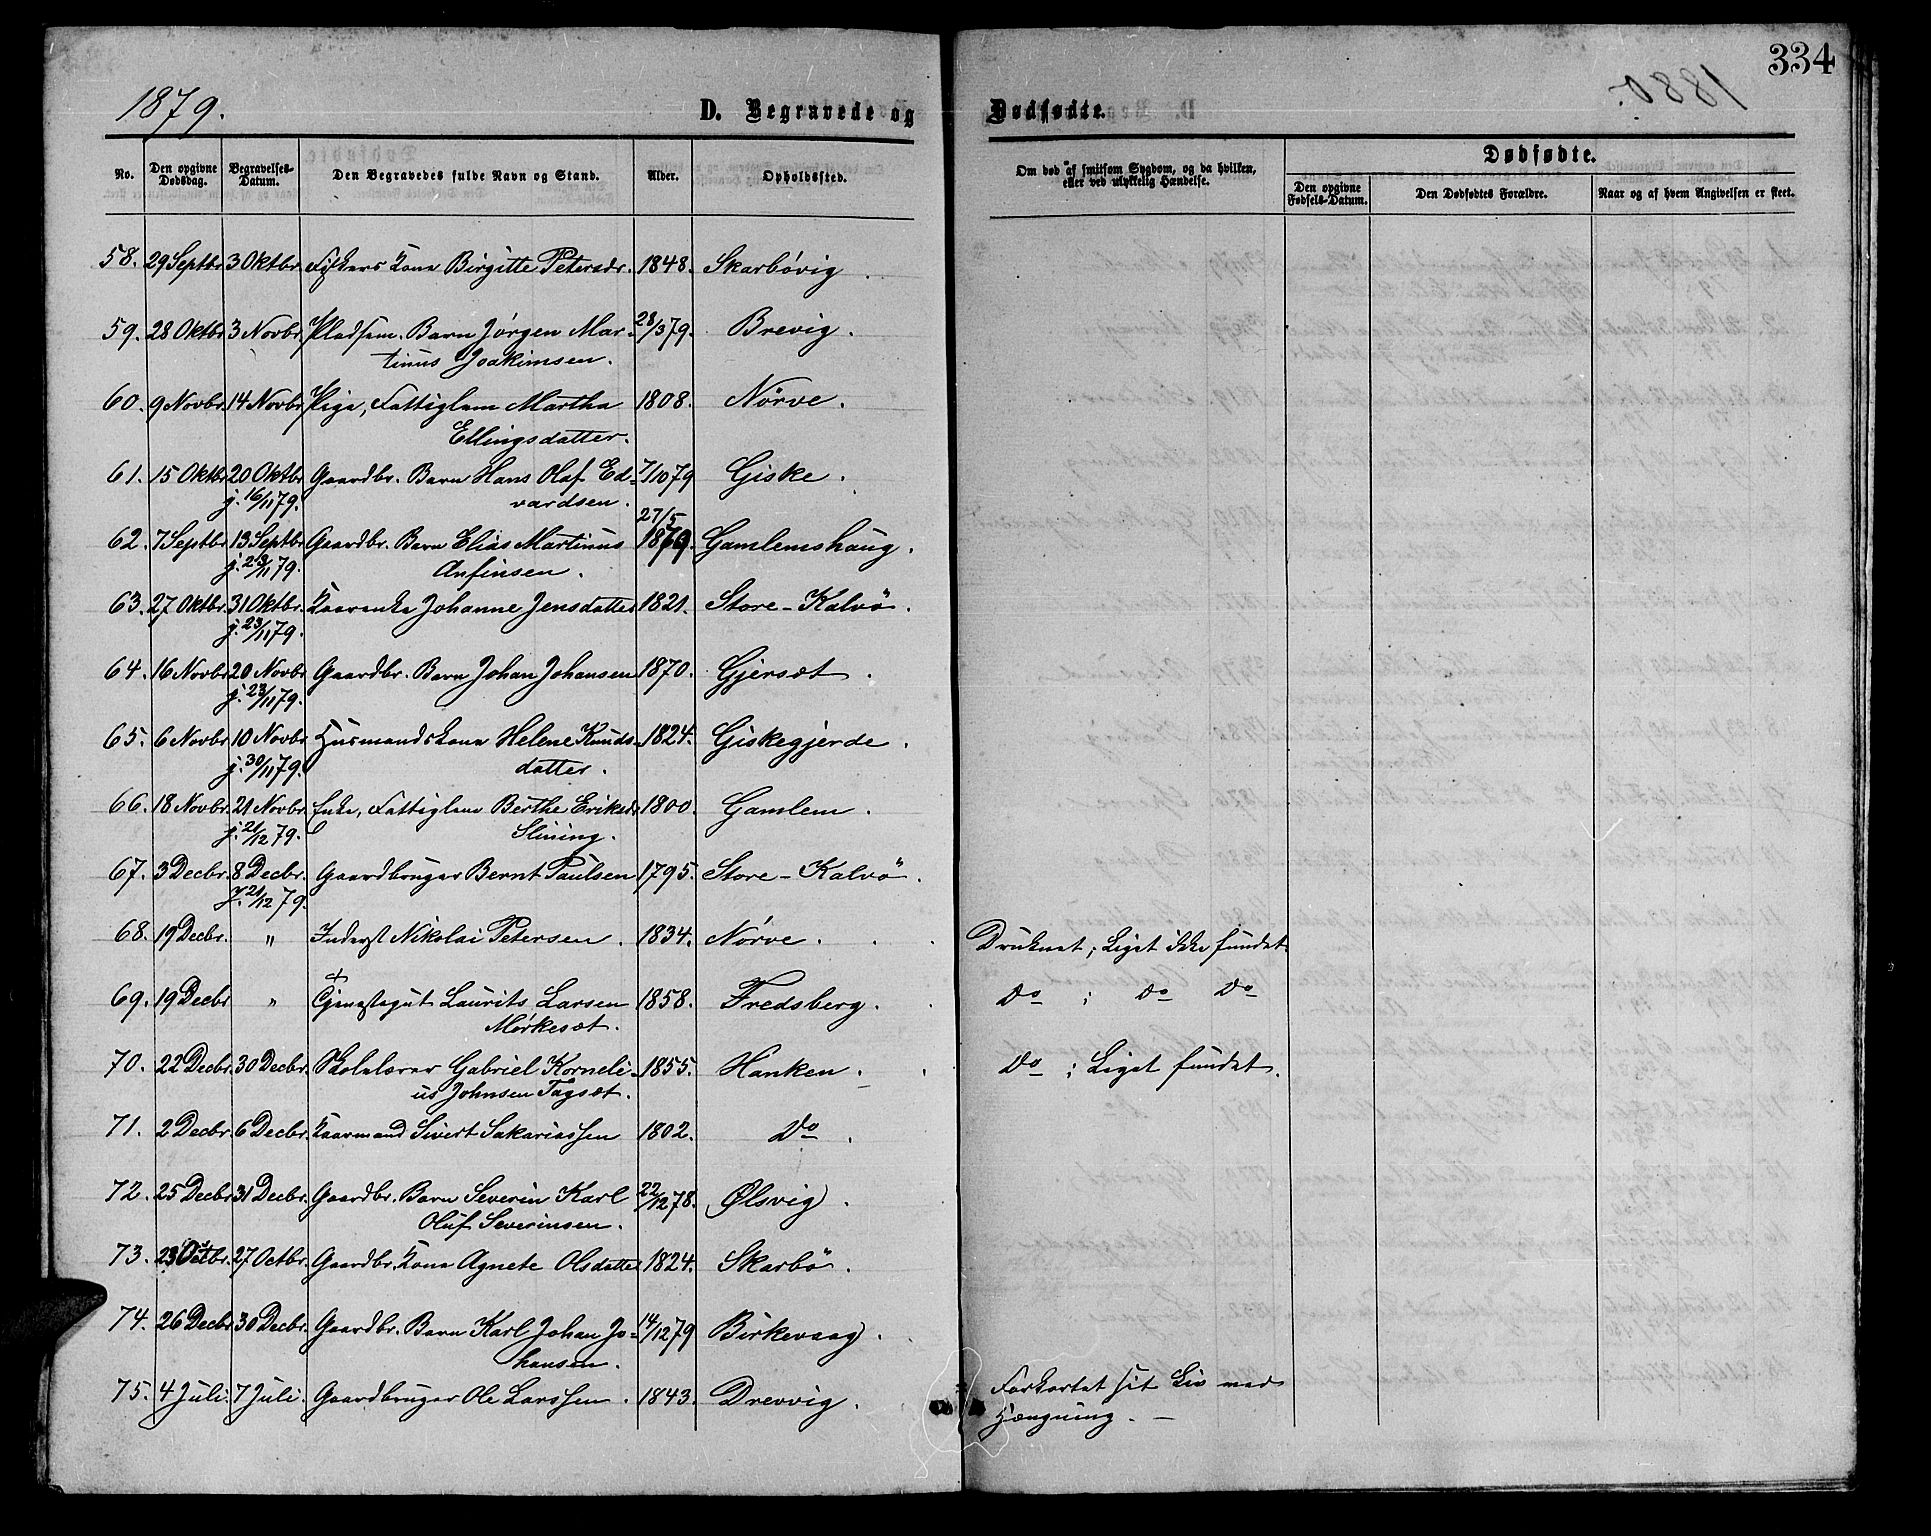 334
1879.
D. Begravede og Dødfødte.
No.
Den opgivne Dødsdag.
Begravelses-Datum.
Den Begravedes fulde Navn og Stand.
Alder.
Opholdssted.
Om død af smitsom Sygdom, og da hvilken, eller ved ulykkelig Hændelse.
Dødfødte.
Den opgivne Fødsels-Datum.
Den Dødfødtes Forældre.
Naar og af hvem Angivelsen er skeet.
58. 29 Septbr 3 Oktbr. Fiskers Kone Birgitte Petersdr. 1848. Skarbövig
59. 28 Oktbr 3 Novbr. Pladsem. Barn Jörgen Mar- 28/3 79. Brevig.
tinus Joakimsen.
60. 9 Novbr. 14 Novbr. Pige, Fattiglem Martha 1808. Nörve.
Ellingsdatter.
61. 15 Oktbr 20 Oktbr Gaardbr. Barn Hans Olaf Ed- 7/10 79 Giske.
j. 16/11 79. vardsen.
27/5
62. 7 Septbr. 13 Septbr. Gaardbr. Barn Elias Martinus 1869. Gamlemshaug.
j. 23/11 79. Anfinsen.
63. 27 Oktbr. 31 Oktbr. Kaarenke Johanne Jensdatter 1821. Store-Kalvö.
j. 23/11 79.
64. 16 Novbr. 20 Novbr. Gaardbr. Barn Johan Johansen 1870. Gjersæt.
j. 23/11 79.
65. 6 Novbr. 10 Novbr. Husmandskone Helene Knuds- 1824. Giskegjerde.
j. 30/11 79. datter.
66. 18 Novbr. 21 Novbr. Enke, Fattiglem Berthe Eriksdr 1800. Gamlem.
j. 21/12 79. Slining.
67. 3 Decbr. 8 Decbr. Gaardbruger Bernt Paulsen 1795. Store-Kalvö.
j. 21/12 79.
68. 19 Decbr. " Inderst Nikolai Petersen. 1834. Nörve. Druknet; Liget ikke fundet.
69. 19 Decbr " Tjenestegut Laurits Larsen 1858. Fredsberg. Do ; Do Do
Mörkesæt.
70. 22 Decbr. 30 Decbr. Skolelærer Gabriel Korneli- 1855. Hanken. Do ; Liget fundet.
us Johnsen Tågsæt.
71. 2 Decbr. 6 Decbr. Kaarmand Sivert Sakariassen 1802. Do.
72. 25 Decbr. 31 Decbr. Gaardbr. Barn Severin Karl 22/12 78. Ølsvig.
Oluf Severinsen.
73. 23 Octbr. 27 Octbr. Gaardbr. Kone Agnete Olsdatter 1824. Skarbö.
74. 26 Decbr. 30 Decbr. Gaardbr. Barn Karl Johan Jo- 14/12 79 Birkevaag.
hansen.
75. 4 Juli. 7 Juli. Gaardbruger Ole Larssen. 1843. Drevvig. Forkortet sit Liv ved
Hængning.